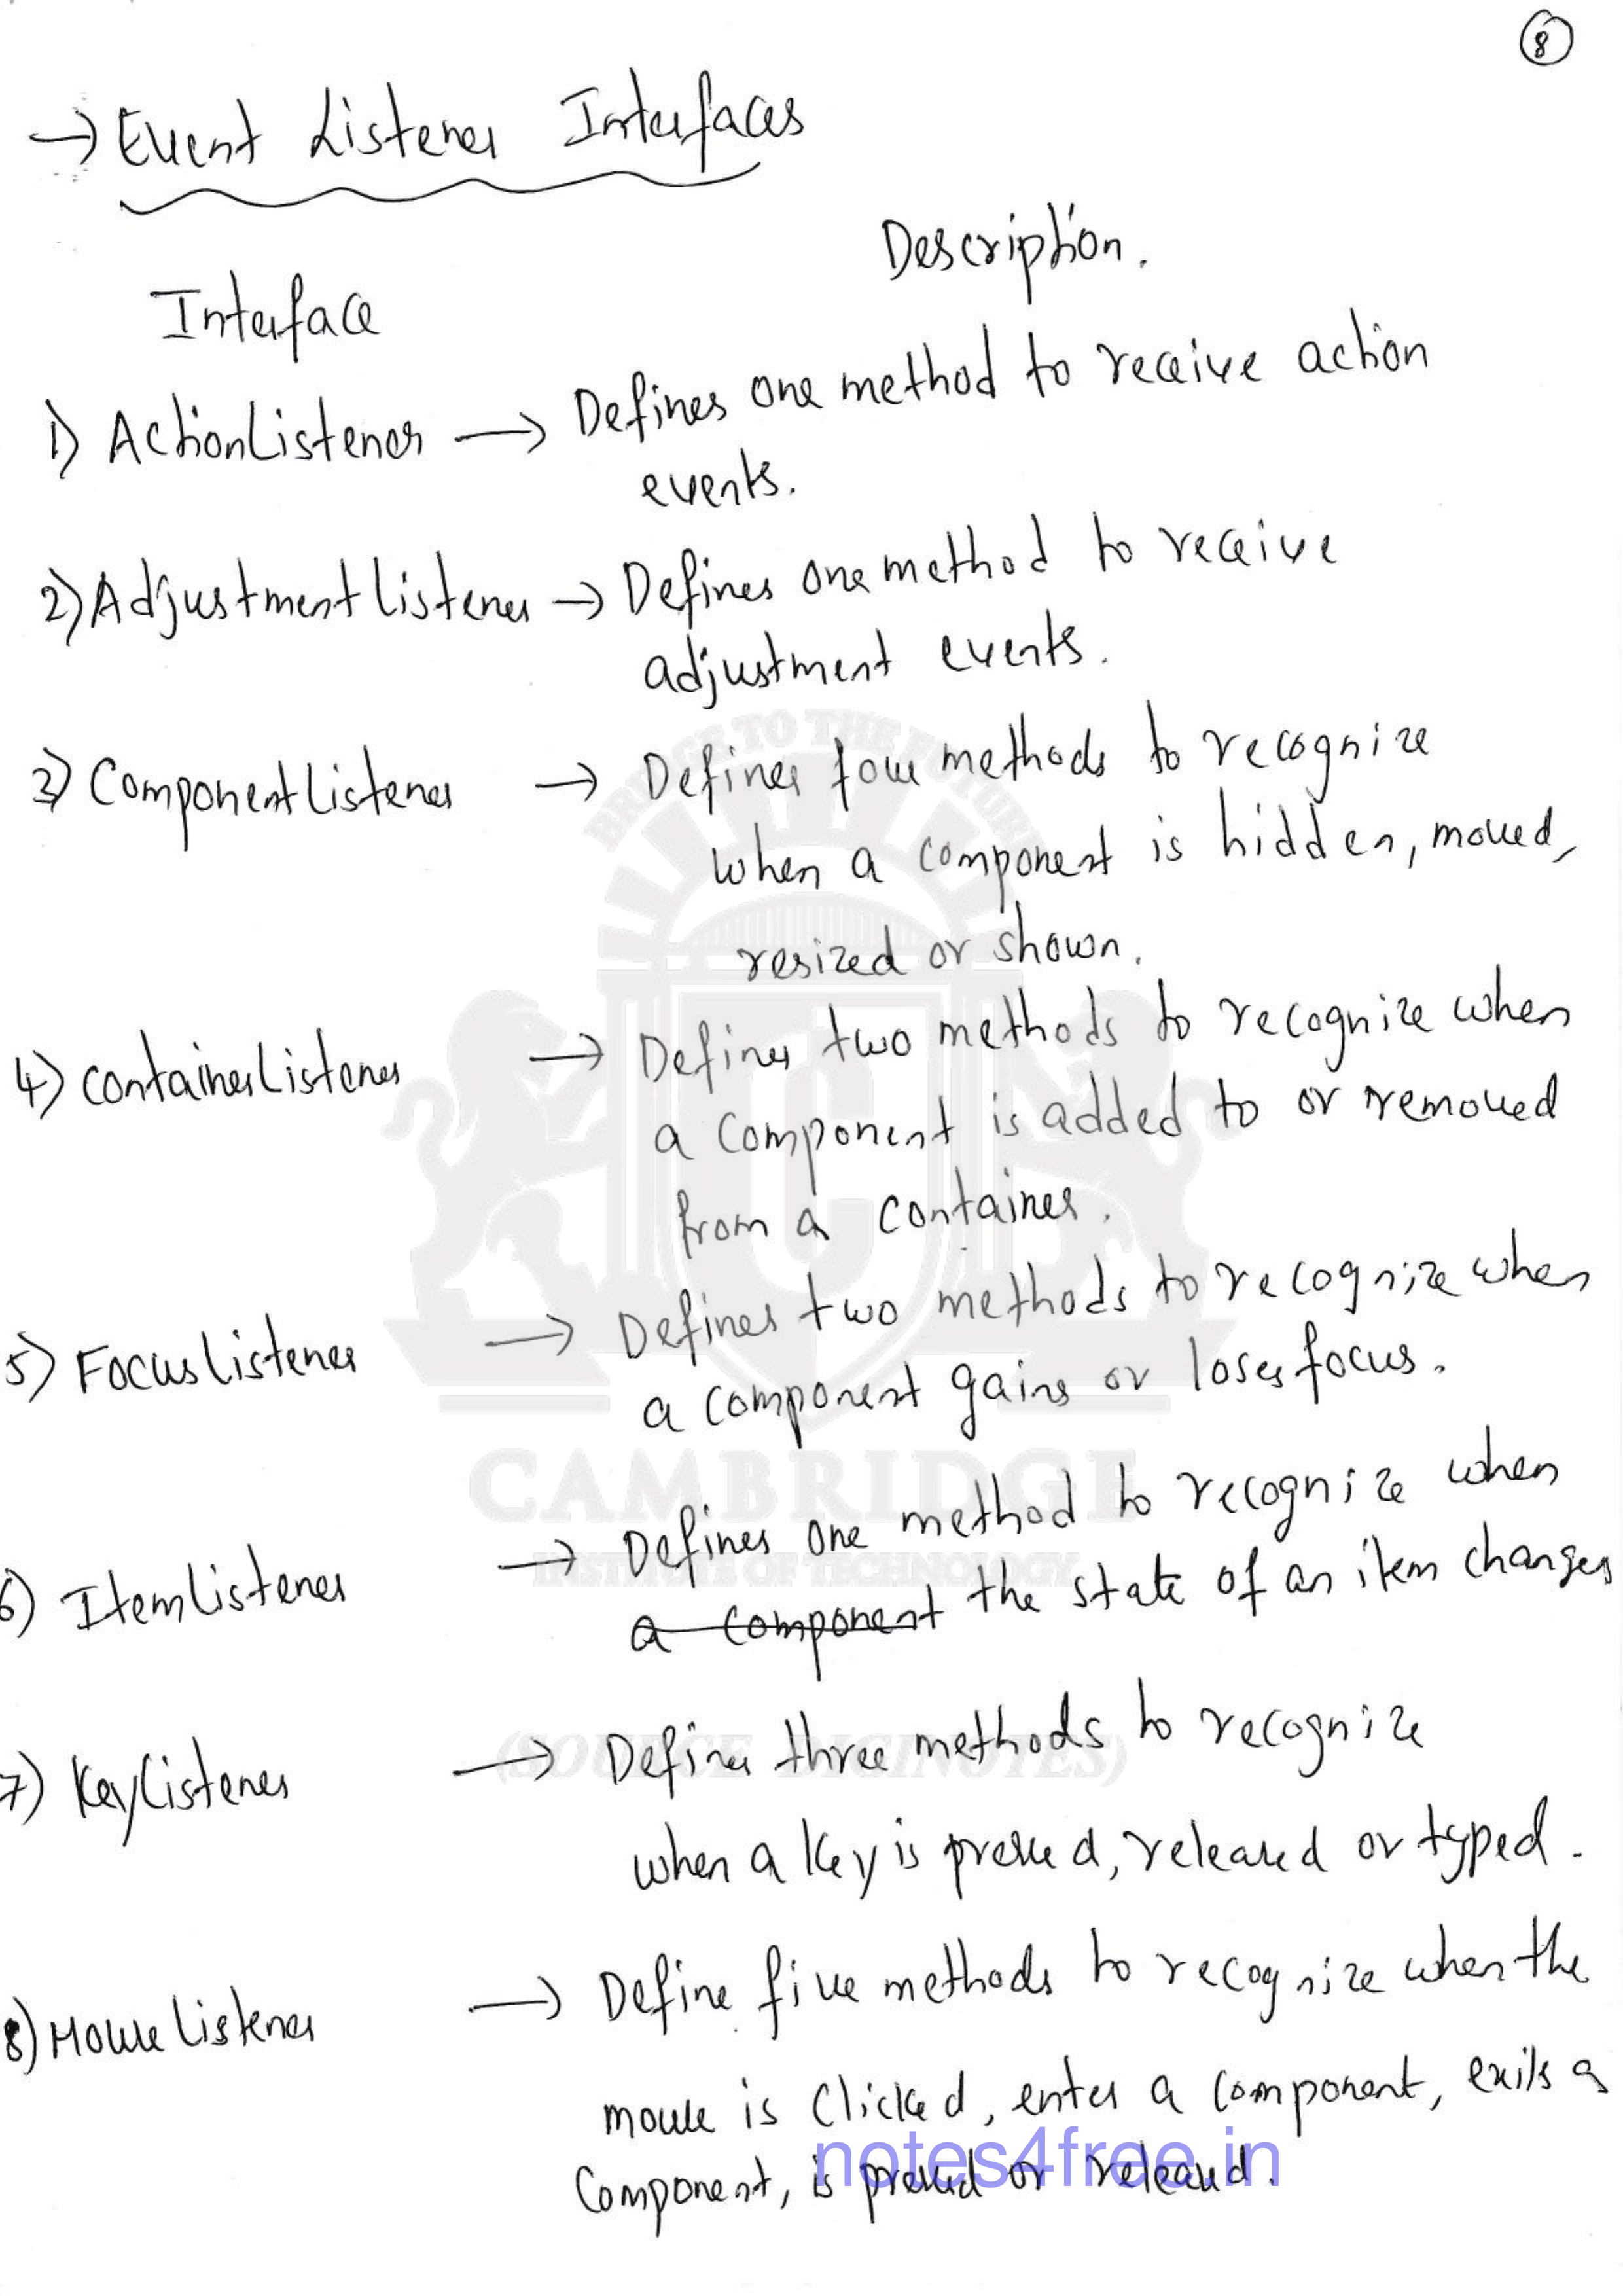 8
→ Event Listener Interfaces
Description.
Interface
1) ActionListener → Defines one method to receive action
events.
2) AdjustmentListener → Defines one method to receive
adjustment events.
3) ComponentListener → Defines four methods to recognize
when a component is hidden, moved,
resized or shown.
4) ContainerListener → Defines two methods to recognize when
a component is added to or removed
from a container.
5) FocusListener → Defines two methods to recognize when
a component gains or loses focus.
6) ItemListener → Defines one method to recognize when
a component the state of an item changes
7) KeyListener → Defines three methods to recognize
when a key is pressed, released or typed.
8) MouseListener → Define five methods to recognize when the
mouse is clicked, enter a component, exits a
component, is pressed or released.
BRIDGE TO THE FUTURE
CAMBRIDGE
INSTITUTE OF TECHNOLOGY
(SOURCE DIGINOTES)
notes4free.in